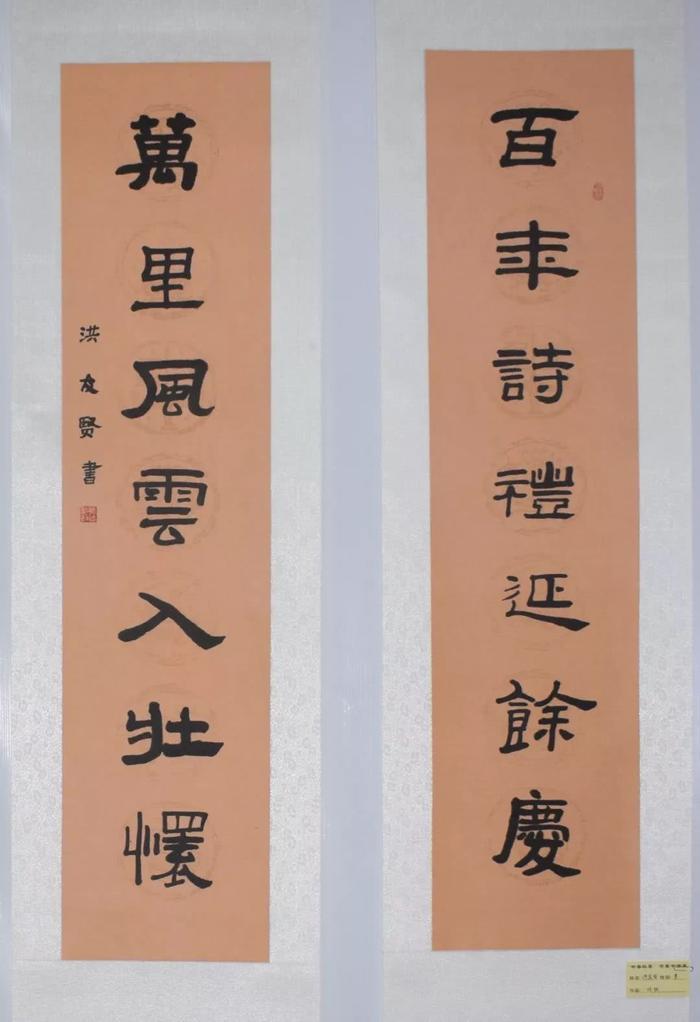 百年詩禮延餘慶
萬里風雲入壯懷
洪友賢書